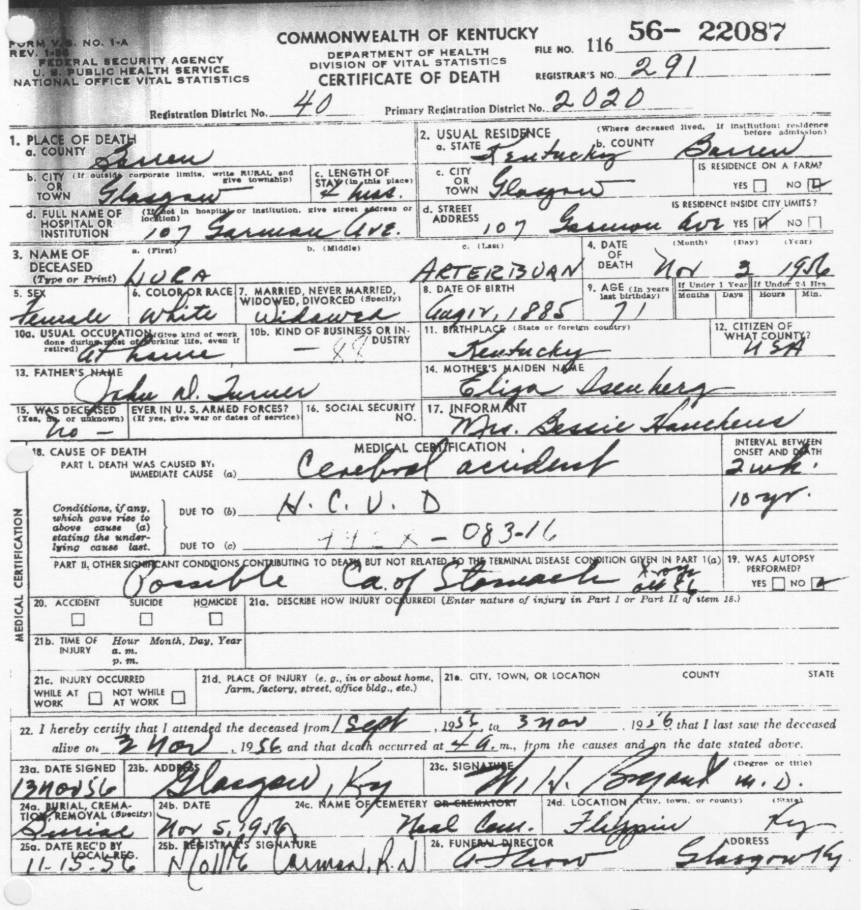 COMMONWEALTH OF KENTUCKY
DEPARTMENT OF HEALTH
DIVISION OF VITAL STATISTICS
CERTIFICATE OF DEATH
FORM V.S. NO. 1-A
REV. 1-56
FEDERAL SECURITY AGENCY
U. S. PUBLIC HEALTH SERVICE
NATIONAL OFFICE VITAL STATISTICS
FILE NO. 116 56- 22087
REGISTRAR'S NO. 291
Registration District No. 40 Primary Registration District No. 2020
1. PLACE OF DEATH
a. COUNTY Barren
2. USUAL RESIDENCE (Where deceased lived. If institution: residence before admission)
a. STATE Kentucky b. COUNTY Barren
b. CITY (If outside corporate limits, write RURAL and give township)
OR TOWN Glasgow
c. LENGTH OF STAY (in this place) 4 mos.
c. CITY OR TOWN Glasgow
IS RESIDENCE ON A FARM?
YES NO
d. FULL NAME OF HOSPITAL OR INSTITUTION (If not in hospital or institution, give street address or location)
107 Garmon Ave.
d. STREET ADDRESS 107 Garmon Ave
IS RESIDENCE INSIDE CITY LIMITS?
YES NO
3. NAME OF DECEASED (Type or Print)
a. (First) b. (Middle) c. (Last)
DURA ARTERBURN
4. DATE OF DEATH (Month) (Day) (Year)
Nov 3 1956
5. SEX Female
6. COLOR OR RACE White
7. MARRIED, NEVER MARRIED, WIDOWED, DIVORCED (Specify) Widowed
8. DATE OF BIRTH 1885
9. AGE (In years last birthday) 71
If Under 1 Year Months Days
If Under 24 Hrs Hours Min.
10a. USUAL OCCUPATION (Give kind of work done during most of working life, even if retired) At home
10b. KIND OF BUSINESS OR INDUSTRY – 88
11. BIRTHPLACE (State or foreign country) Kentucky
12. CITIZEN OF WHAT COUNTY? USA
13. FATHER'S NAME
John D. Turner
14. MOTHER'S MAIDEN NAME
Eliza Isenberg
15. WAS DECEASED EVER IN U. S. ARMED FORCES?
(Yes, no, or unknown) (If yes, give war or dates of service)
no –
16. SOCIAL SECURITY NO.
17. INFORMANT
Mrs. Bessie Houchens
18. CAUSE OF DEATH MEDICAL CERTIFICATION INTERVAL BETWEEN ONSET AND DEATH
PART I. DEATH WAS CAUSED BY:
IMMEDIATE CAUSE (a) Cerebral accident 2 wk.
Conditions, if any, which gave rise to above cause (a) stating the underlying cause last.
DUE TO (b) H. C. V. D 10 yr.
DUE TO (c) – 083-16
PART II, OTHER SIGNIFICANT CONDITIONS CONTRIBUTING TO DEATH BUT NOT RELATED TO THE TERMINAL DISEASE CONDITION GIVEN IN PART 1(a)
Possible Ca. of Stomach X-ray 56
19. WAS AUTOPSY PERFORMED?
YES NO
MEDICAL CERTIFICATION
20. ACCIDENT SUICIDE HOMICIDE
21a. DESCRIBE HOW INJURY OCCURRED! (Enter nature of injury in Part I or Part II of item 18.)
21b. TIME OF INJURY Hour Month, Day, Year
a. m.
p. m.
21c. INJURY OCCURRED
WHILE AT WORK NOT WHILE AT WORK
21d. PLACE OF INJURY (e. g., in or about home, farm, factory, street, office bldg., etc.)
21e. CITY, TOWN, OR LOCATION COUNTY STATE
22. I hereby certify that I attended the deceased from 1 Sept, 1956, to 3 nov, 1956 that I last saw the deceased
alive on 2 Nov, 1956 and that death occurred at 4 a. m., from the causes and on the date stated above.
23a. DATE SIGNED 13 Nov 56
23b. ADDRESS Glasgow, Ky
23c. SIGNATURE (Degree or title) W. H. Bryant M. D.
24a. BURIAL, CREMATION, REMOVAL (Specify) Burial
24b. DATE Nov 5, 1956
24c. NAME OF CEMETERY OR CREMATORY Neal Cem.
24d. LOCATION (City, town, or county) (State) Flippin Ky
25a. DATE REC'D BY LOCAL REG. 11-15-56
25b. REGISTRAR'S SIGNATURE Mollie Carman, R. N
26. FUNERAL DIRECTOR ADDRESS Glasgow Ky.